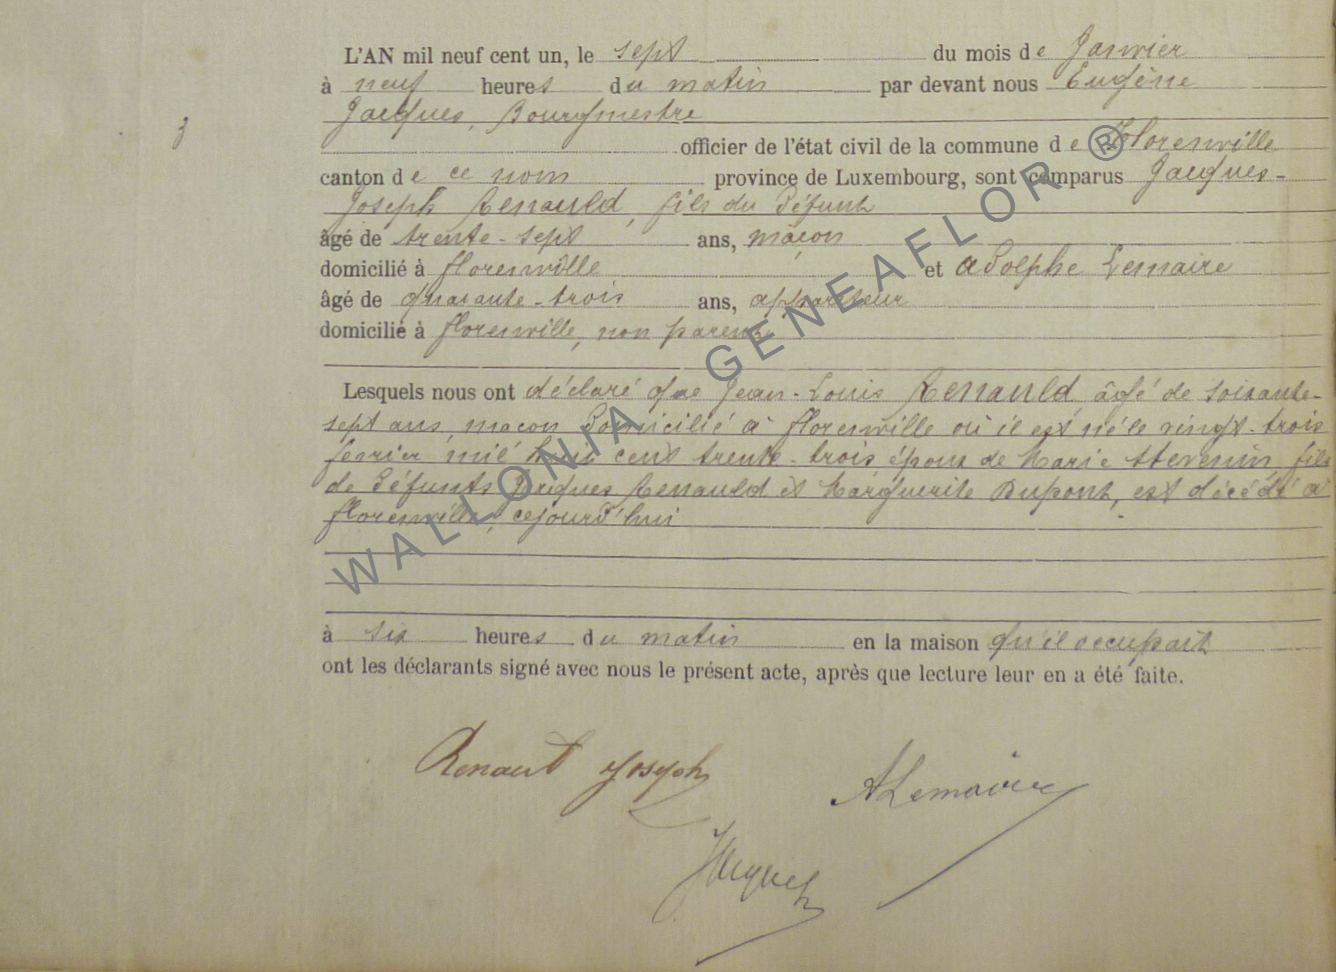 L'AN mil neuf cent un, le sept du mois de Janvier
à neuf heures du matin par devant nous Eugène
Jacques, Bourgmestre
3
officier de l'état civil de la commune de Florenville
canton de ce nom province de Luxembourg, sont comparus Jacques-
Joseph Renauld, fils du défunt
âgé de trente-sept ans, maçon
domicilié à florenville et Adolphe Lemaire
âgé de quarante-trois ans, appariteur
domicilié à florenville, non parent
Lesquels nous ont déclaré que Jean-Louis Renauld, âgé de soixante-
sept ans, maçon domicilié à florenville où il est né le vingt-trois
fevrier mil huit cent trente-trois, époux de Marie Thevenin, fils
de défunts Jacques Renauld et Marguerite Dupont, est décédé à
florenville, cejourd'hui
à six heures du matin en la maison qu'il occupait
ont les déclarants signé avec nous le présent acte, après que lecture leur en a été faite.
Renault Joseph
ALemaire
Jacques
WALLONIA GENEAFLOR ®